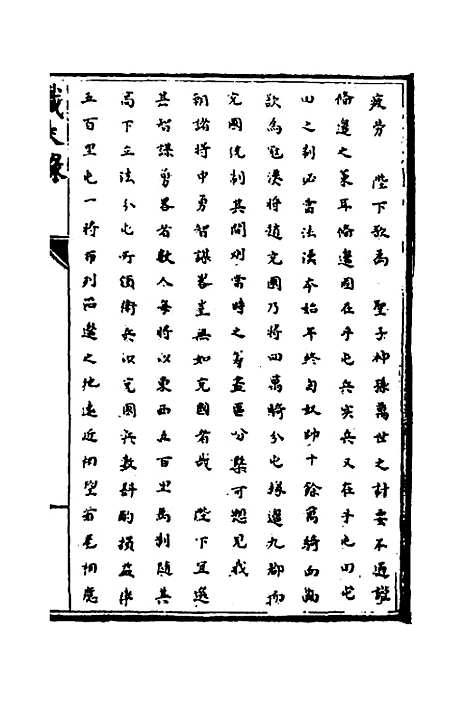 疲劳 陛下欲為 聖子神孫萬世之計要不過謹
備邊之策耳備邊固在乎屯兵实兵又在乎屯田屯
田之制必當法漢本始年終匈奴帥十餘萬騎而南
欲為寇漢將趙充國乃將四萬騎分屯緣邊九郡而
充國統制其間則當時之籌畫區分槩可想見哉
朝諸將中勇智謀畧豈無如充國者哉 陛下宜選
其智謀勇畧者數人每將以東西五百里為制隨其
高下立法分屯所領衛兵以充國兵數斟酌損益率
五百里屯一將布列沿邊之地遠近相望首尾相應